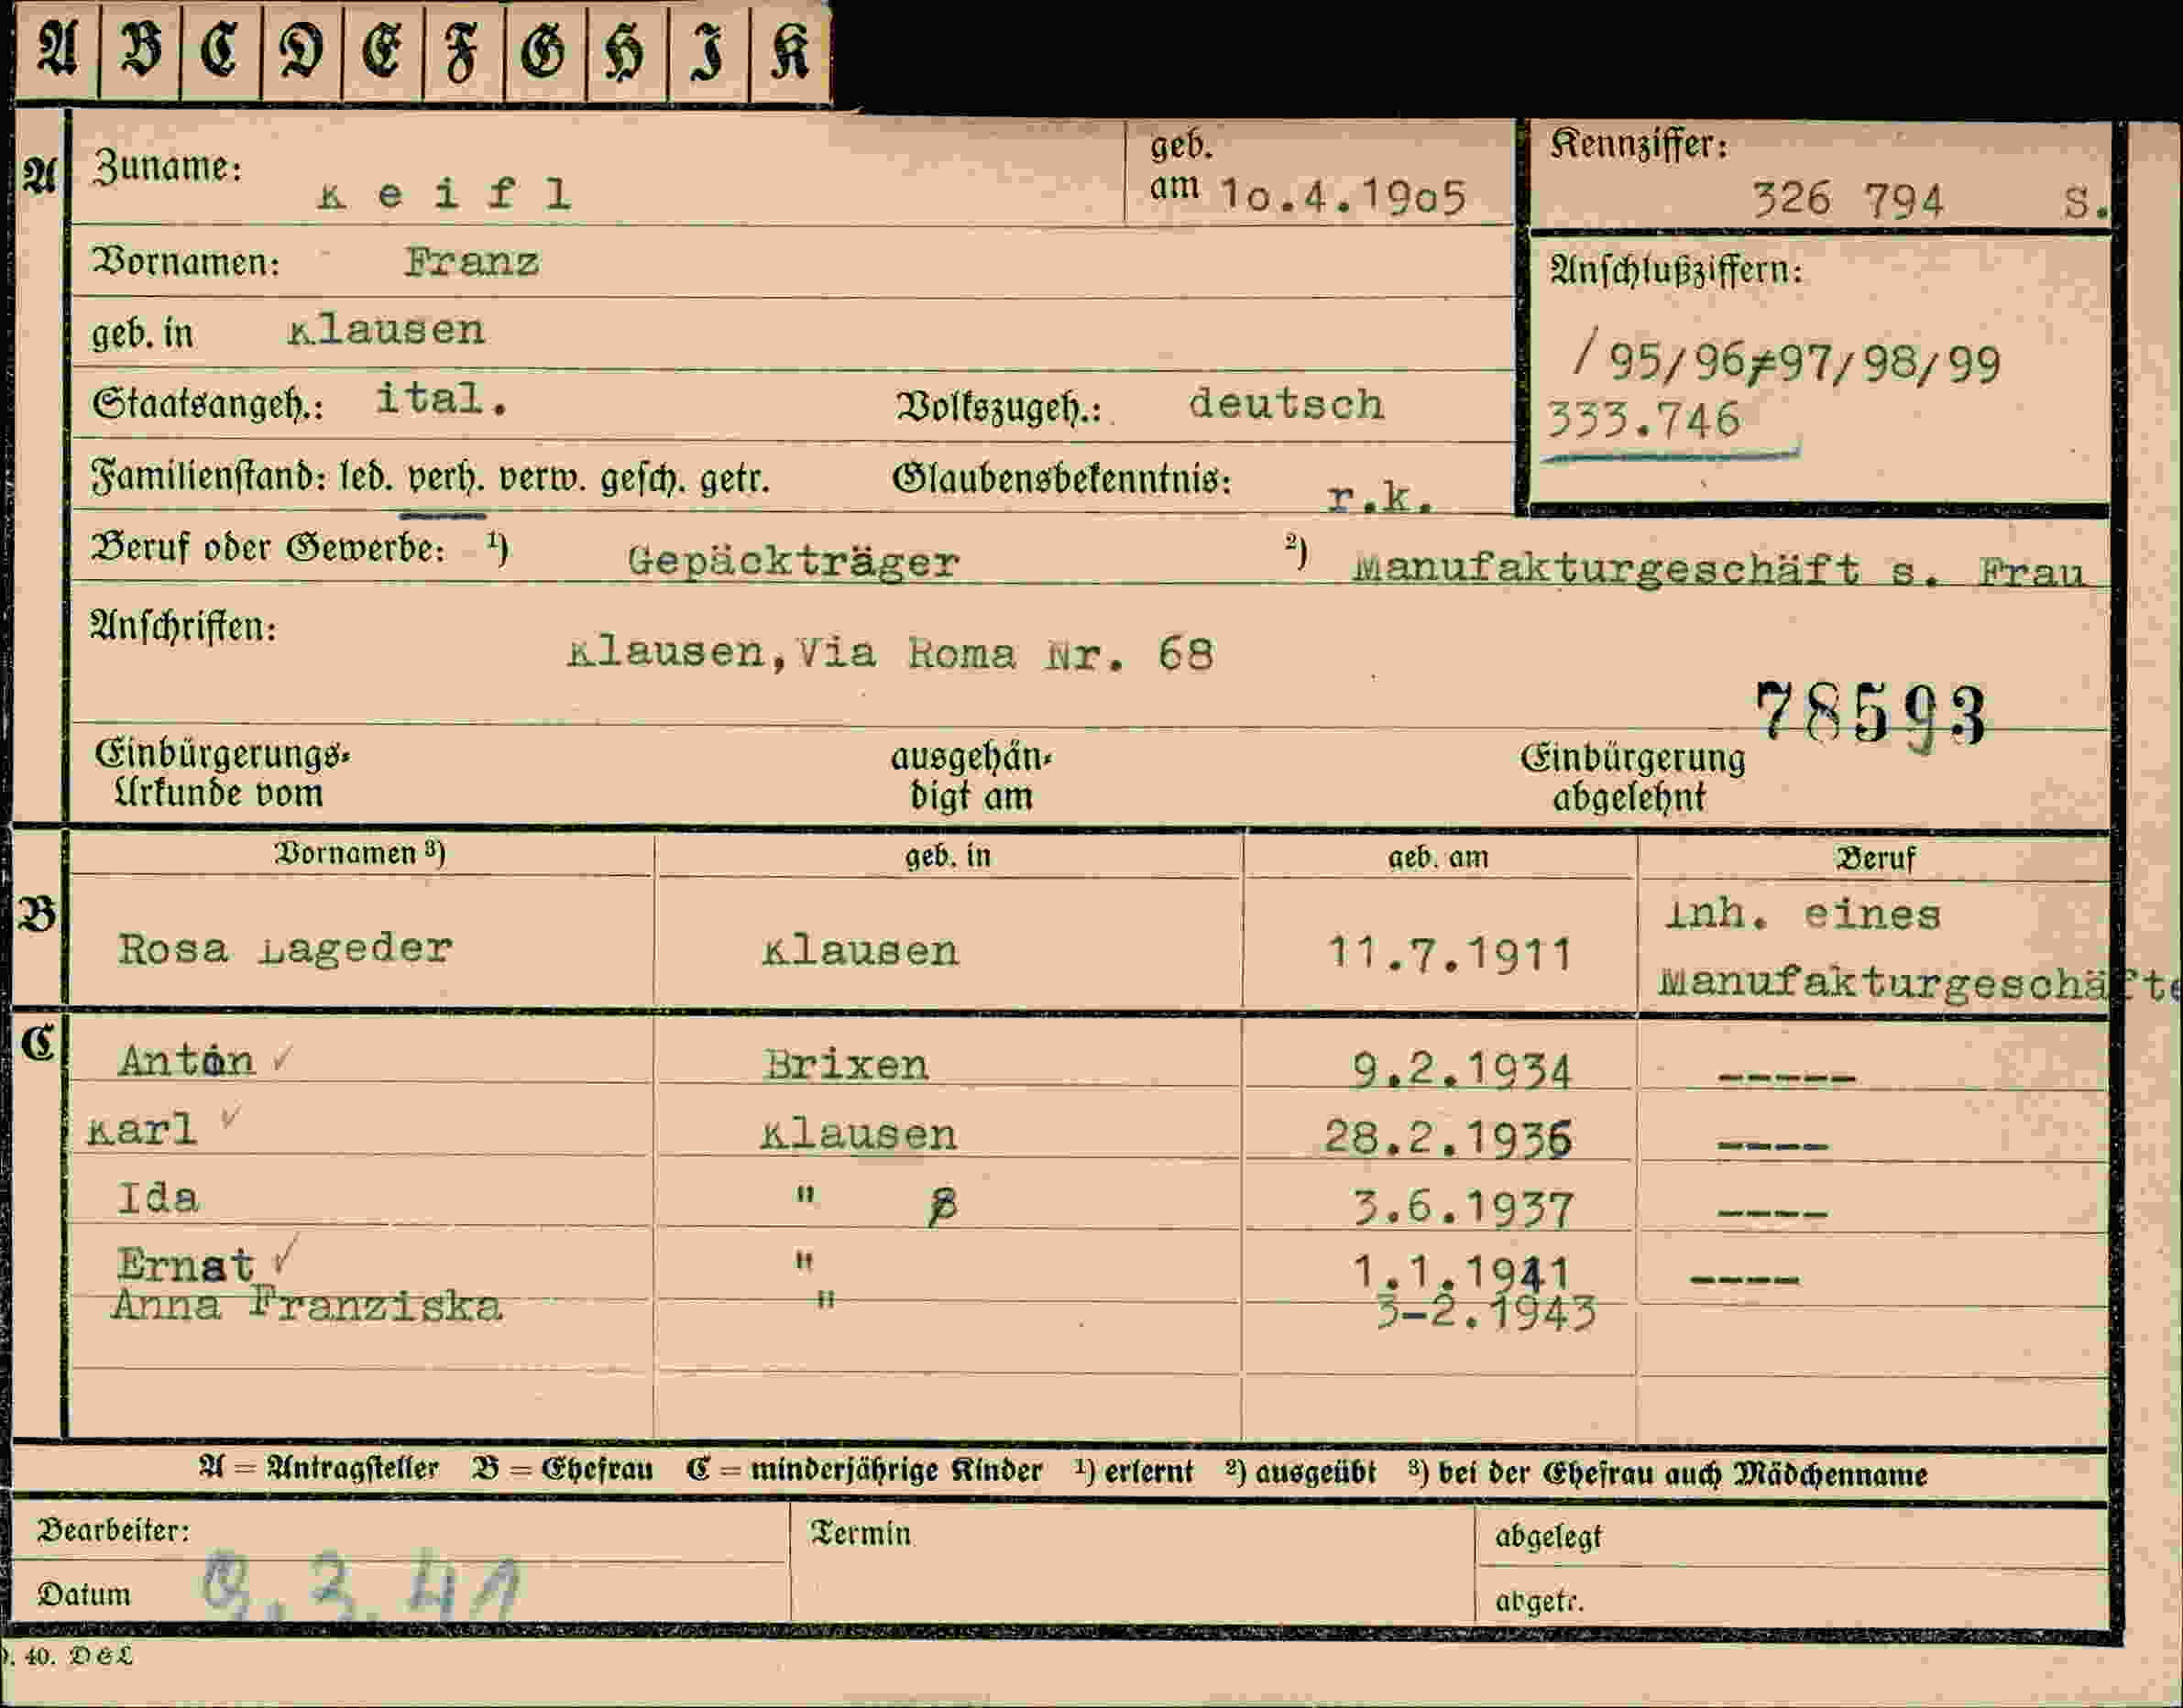 A B C D E F G H I K
A
Zuname: Keifl geb. am 1o.4.19o5
Kennziffer: 326 794 S.
Vornamen: Franz
Anschlußziffern:
geb. in Klausen
/ 95/96≠97/98/99
Staatsangeh.: ital. Volkszugeh.: deutsch
333.746
Familienstand: led. verh. verw. gesch. getr. Glaubensbekenntnis: r.k.
Beruf oder Gewerbe: 1) Gepäckträger 2) Manufakturgeschäft s. Frau
Anschriften: Klausen,Via Roma Nr. 68
78593
Einbürgerungs-Urkunde vom ausgehän-digt am Einbürgerung abgelehnt
B
Vornamen 3) geb. in geb. am Beruf
Rosa Lageder Klausen 11.7.1911 Inh. eines
Manufakturgeschäfte
C
Anton ✓ Brixen 9.2.1934 -----
Karl ✓ Klausen 28.2.1936 ----
Ida " 3.6.1937 ----
Ernst ✓ " 1.1.1941 ----
Anna Franziska " 3-2.1943
A = Antragsteller B = Ehefrau C = minderjährige Kinder 1) erlernt 2) ausgeübt 3) bei der Ehefrau auch Mädchenname
Bearbeiter: Termin abgelegt
Datum 9.3.41 abgetr.
40. D&L